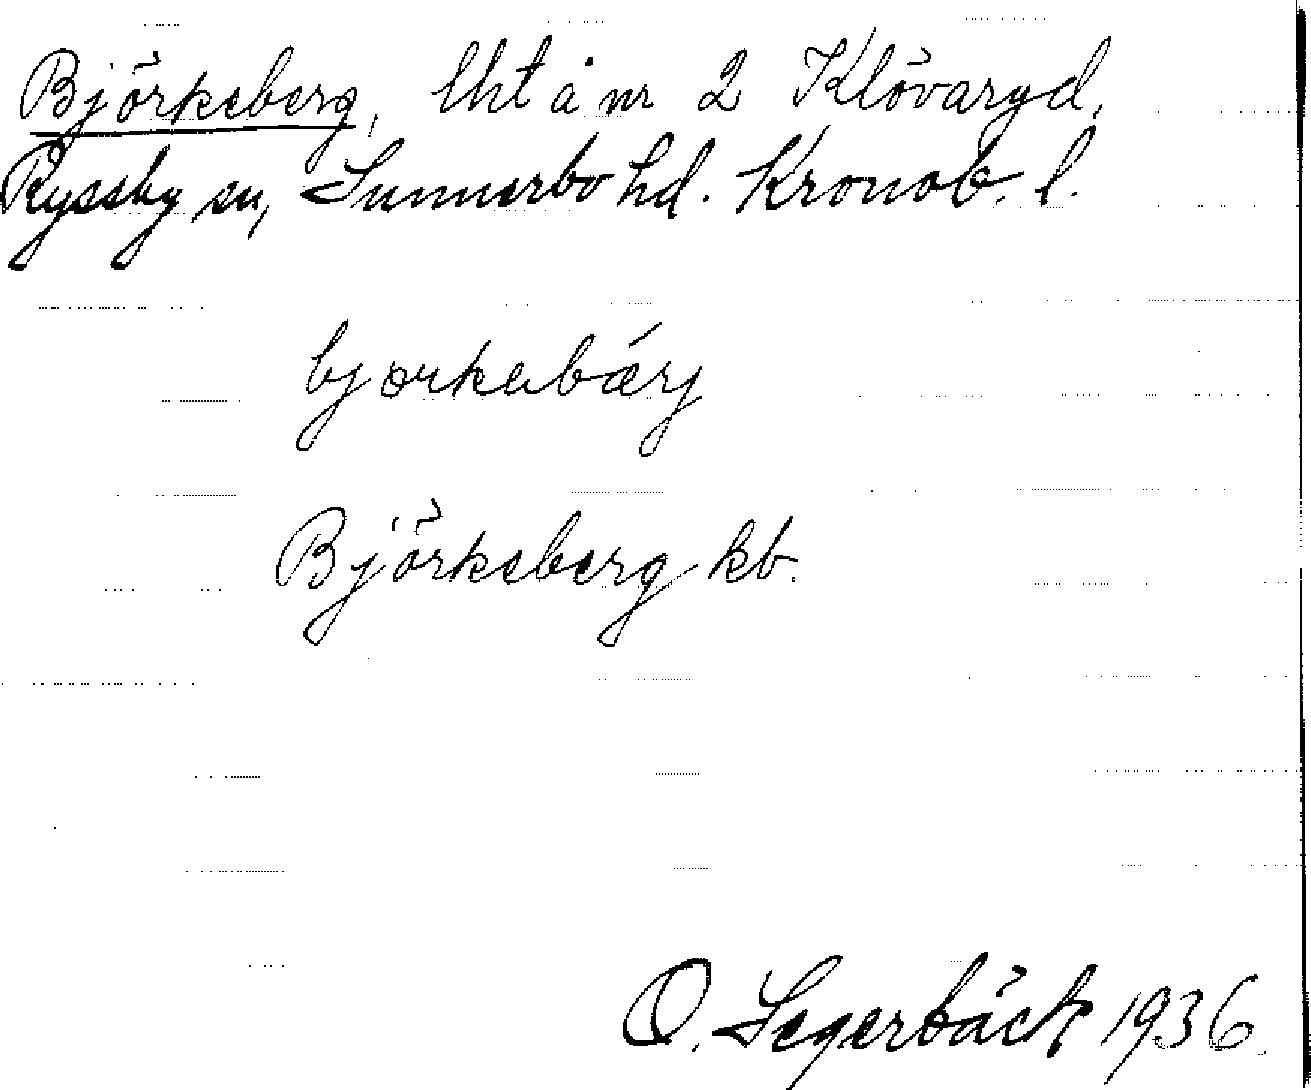 Björkeberg, lht å nr 2 Klövaryd,
Ryssby sn, Sunnerbo hd. Kronob. l.
bjørkabǽrj
Björkeberg kb.
O. Segerbäck 1936.